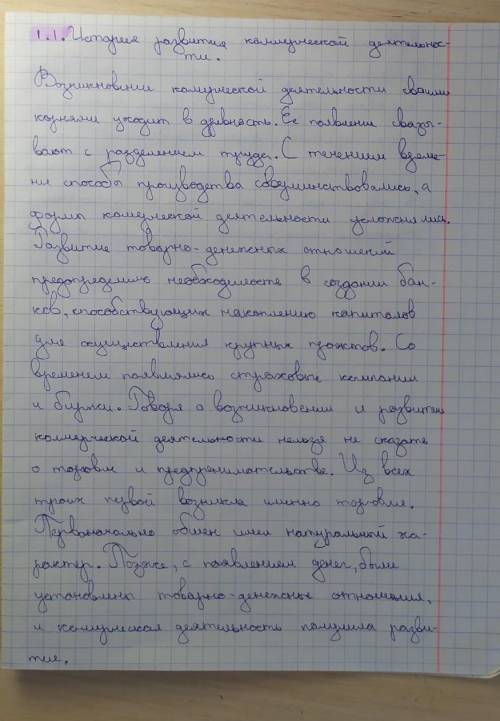 1.1. История развития коммерческой деятельнос-
ти.
Возникновение коммерческой деятельности своими
корнями уходит в древность. Ее появление связы-
вают с разделением труда. С течением време-
ни способы производства совершенствовались, а
формы коммерческой деятельности усложнялись.
Развитие товарно-денежных отношений
предопределило необходимость в создании бан-
ков, способствующих накоплению капиталов
для осуществления крупных проектов. Со
временем появлялись страховые компании
и биржи. Говоря о возникновении и развитии
коммерческой деятельности нельзя не сказать
о торговле и предпринимательстве. Из всех
троих первой возникла именно торговля.
Первоначально обмен имел натуральный ха-
рактер. Позже, с появлением денег, были
установлены товарно-денежные отношения,
и коммерческая деятельность получила разви-
тие.